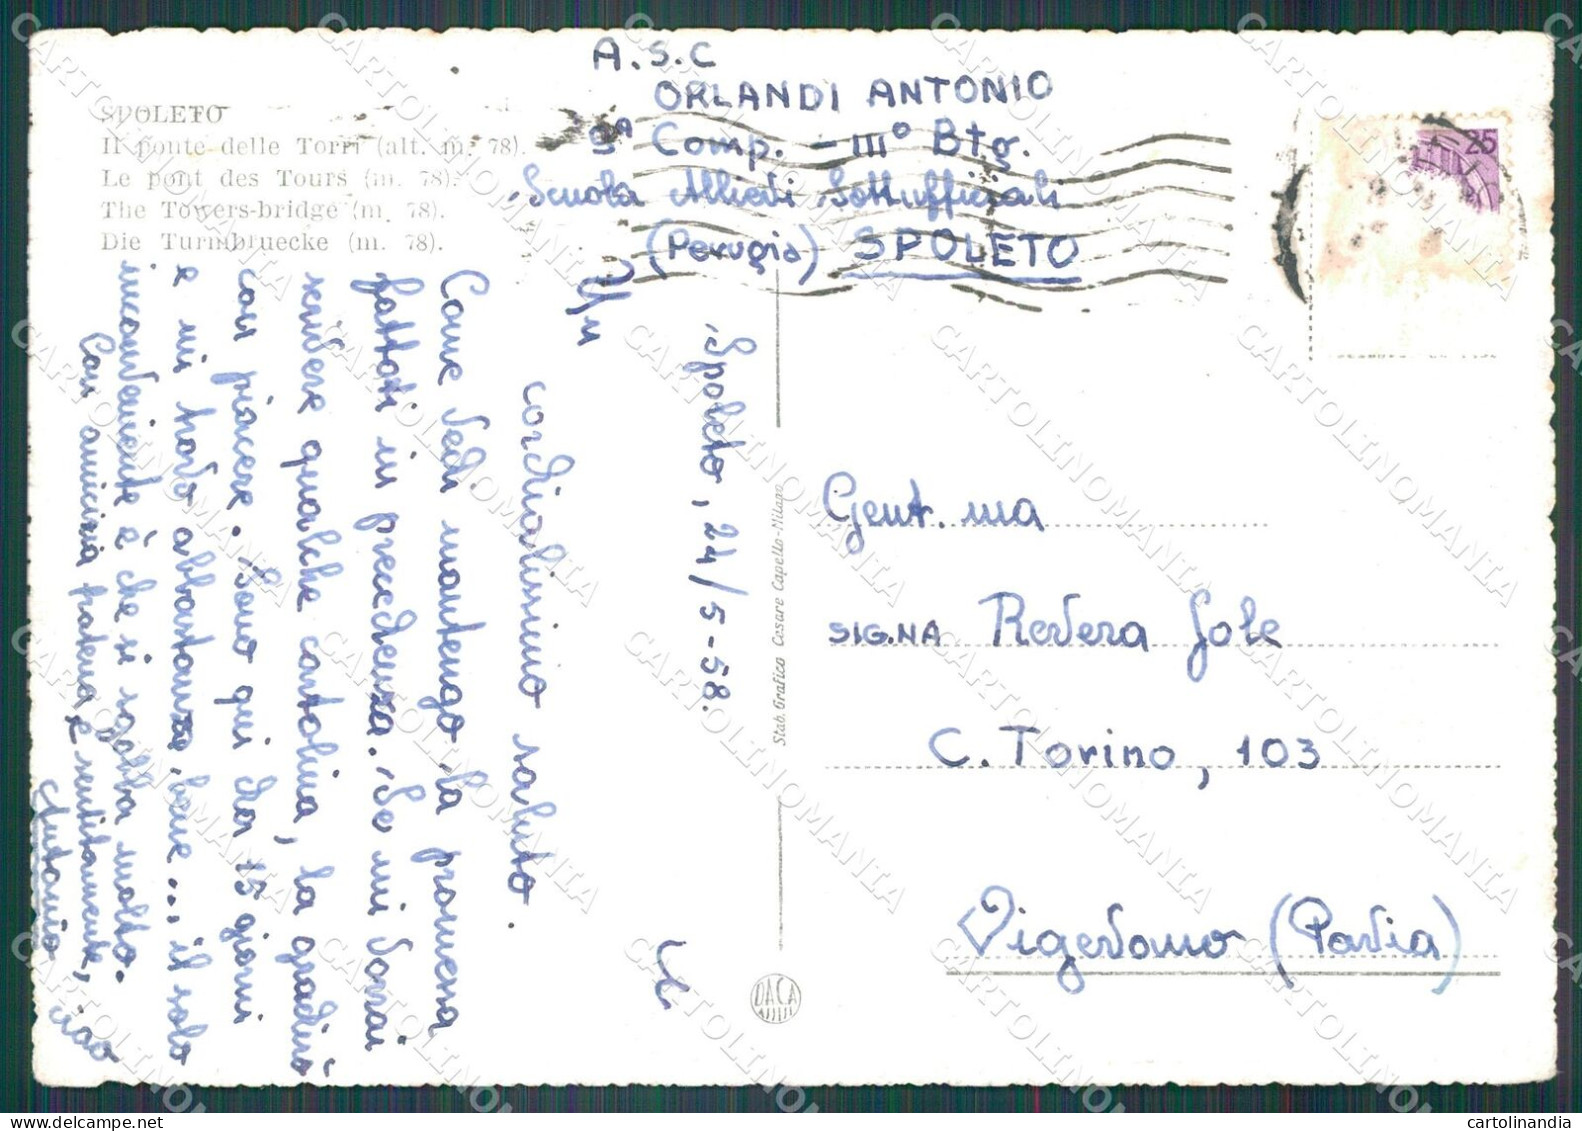 SPOLETO
Il ponte delle Torri (alt. m. 78).
Le pont des Tours (m. 78).
The Towers-bridge (m. 78).
Die Turmbruecke (m. 78).
A.S.C
ORLANDI ANTONIO
9ª Comp. - III° Btg.
Scuola Allievi Sottufficiali
(Perugia) SPOLETO
25
Spoleto, 24/5-58.
Un
cordialissimo saluto.
Come vedi mantengo la promessa
fattati in precedenza. Se mi vorrai
rendere qualche cartolina, la gradirò
con piacere. Sono qui da 15 giorni
e mi trovo abbastanza bene... il solo
inconveniente è che si sgobba molto.
Con amicizia fraterna e sentitamente, ciao
Antonio
Stab. Grafico Cesare Capello-Milano
DACA
ASSISI
Gent. ma
SIG.NA Revera Jole
C. Torino, 103
Vigevano (Pavia)
CARTOLINOMANIA
cartolinandia